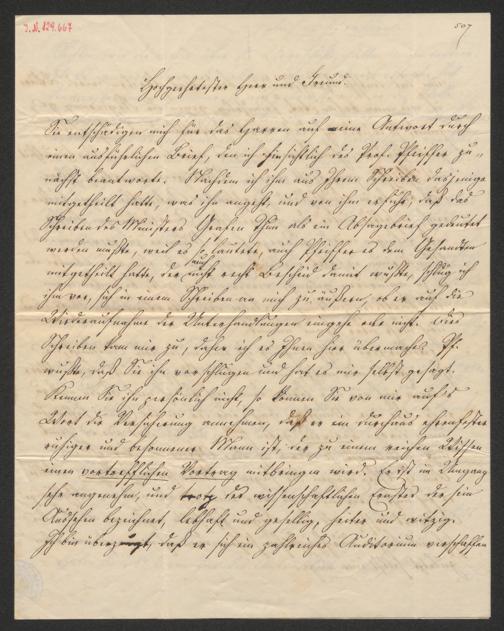 I.N. 129.667
507
Hochgeehrtester Herr und Freund.
Sie entschädigen mich für das Harren auf eine Antwort durch
einen ausführlichen Brief, den ich hinsichtlich des Prof. Pfeiffer zu-
nächst beantworte. Nachdem ich ihm aus Ihrem Schreiben dasjenige
mitgetheilt hatte, was ihn angeht, und von ihm erfuhr, daß das
Schreiben des Ministers Grafen Thun als ein Absagebrief gedeutet
werden müßte, weil es so lautete, auch Pfeiffer es dem Gesandten
mitgetheilt hatte, der auch nicht recht Bescheid damit wußte, schlug ich
ihm vor, sich in einem Schreiben an mich zu äußern, ob er auf die
Wiederaufnahme der Unterhandlungen eingehe oder nicht. Dies
Schreiben kam mir zu, daher ich es Ihnen hier übermache. Pf.
wußte, daß Sie ihn vorschlugen und hat es mir selbst gesagt.
Kennen Sie ihn persönlich nicht, so können Sie von mir aufs
Wort die Versicherung annehmen, daß er ein durchaus ehrenfester
ruhiger und besonnener Mann ist, der zu einem reichen Wissen
einen vortrefflichen Vortrag mitbringen wird. Er ist im Umgang
sehr angenehm, und trotz des wissenschaftlichen Ernstes der sein
Aussehen bezeichnet, lebhaft und gesellig, heiter und witzig.
Ich bin überzeugt, daß er sich ein zahlreiches Auditorium verschaffen